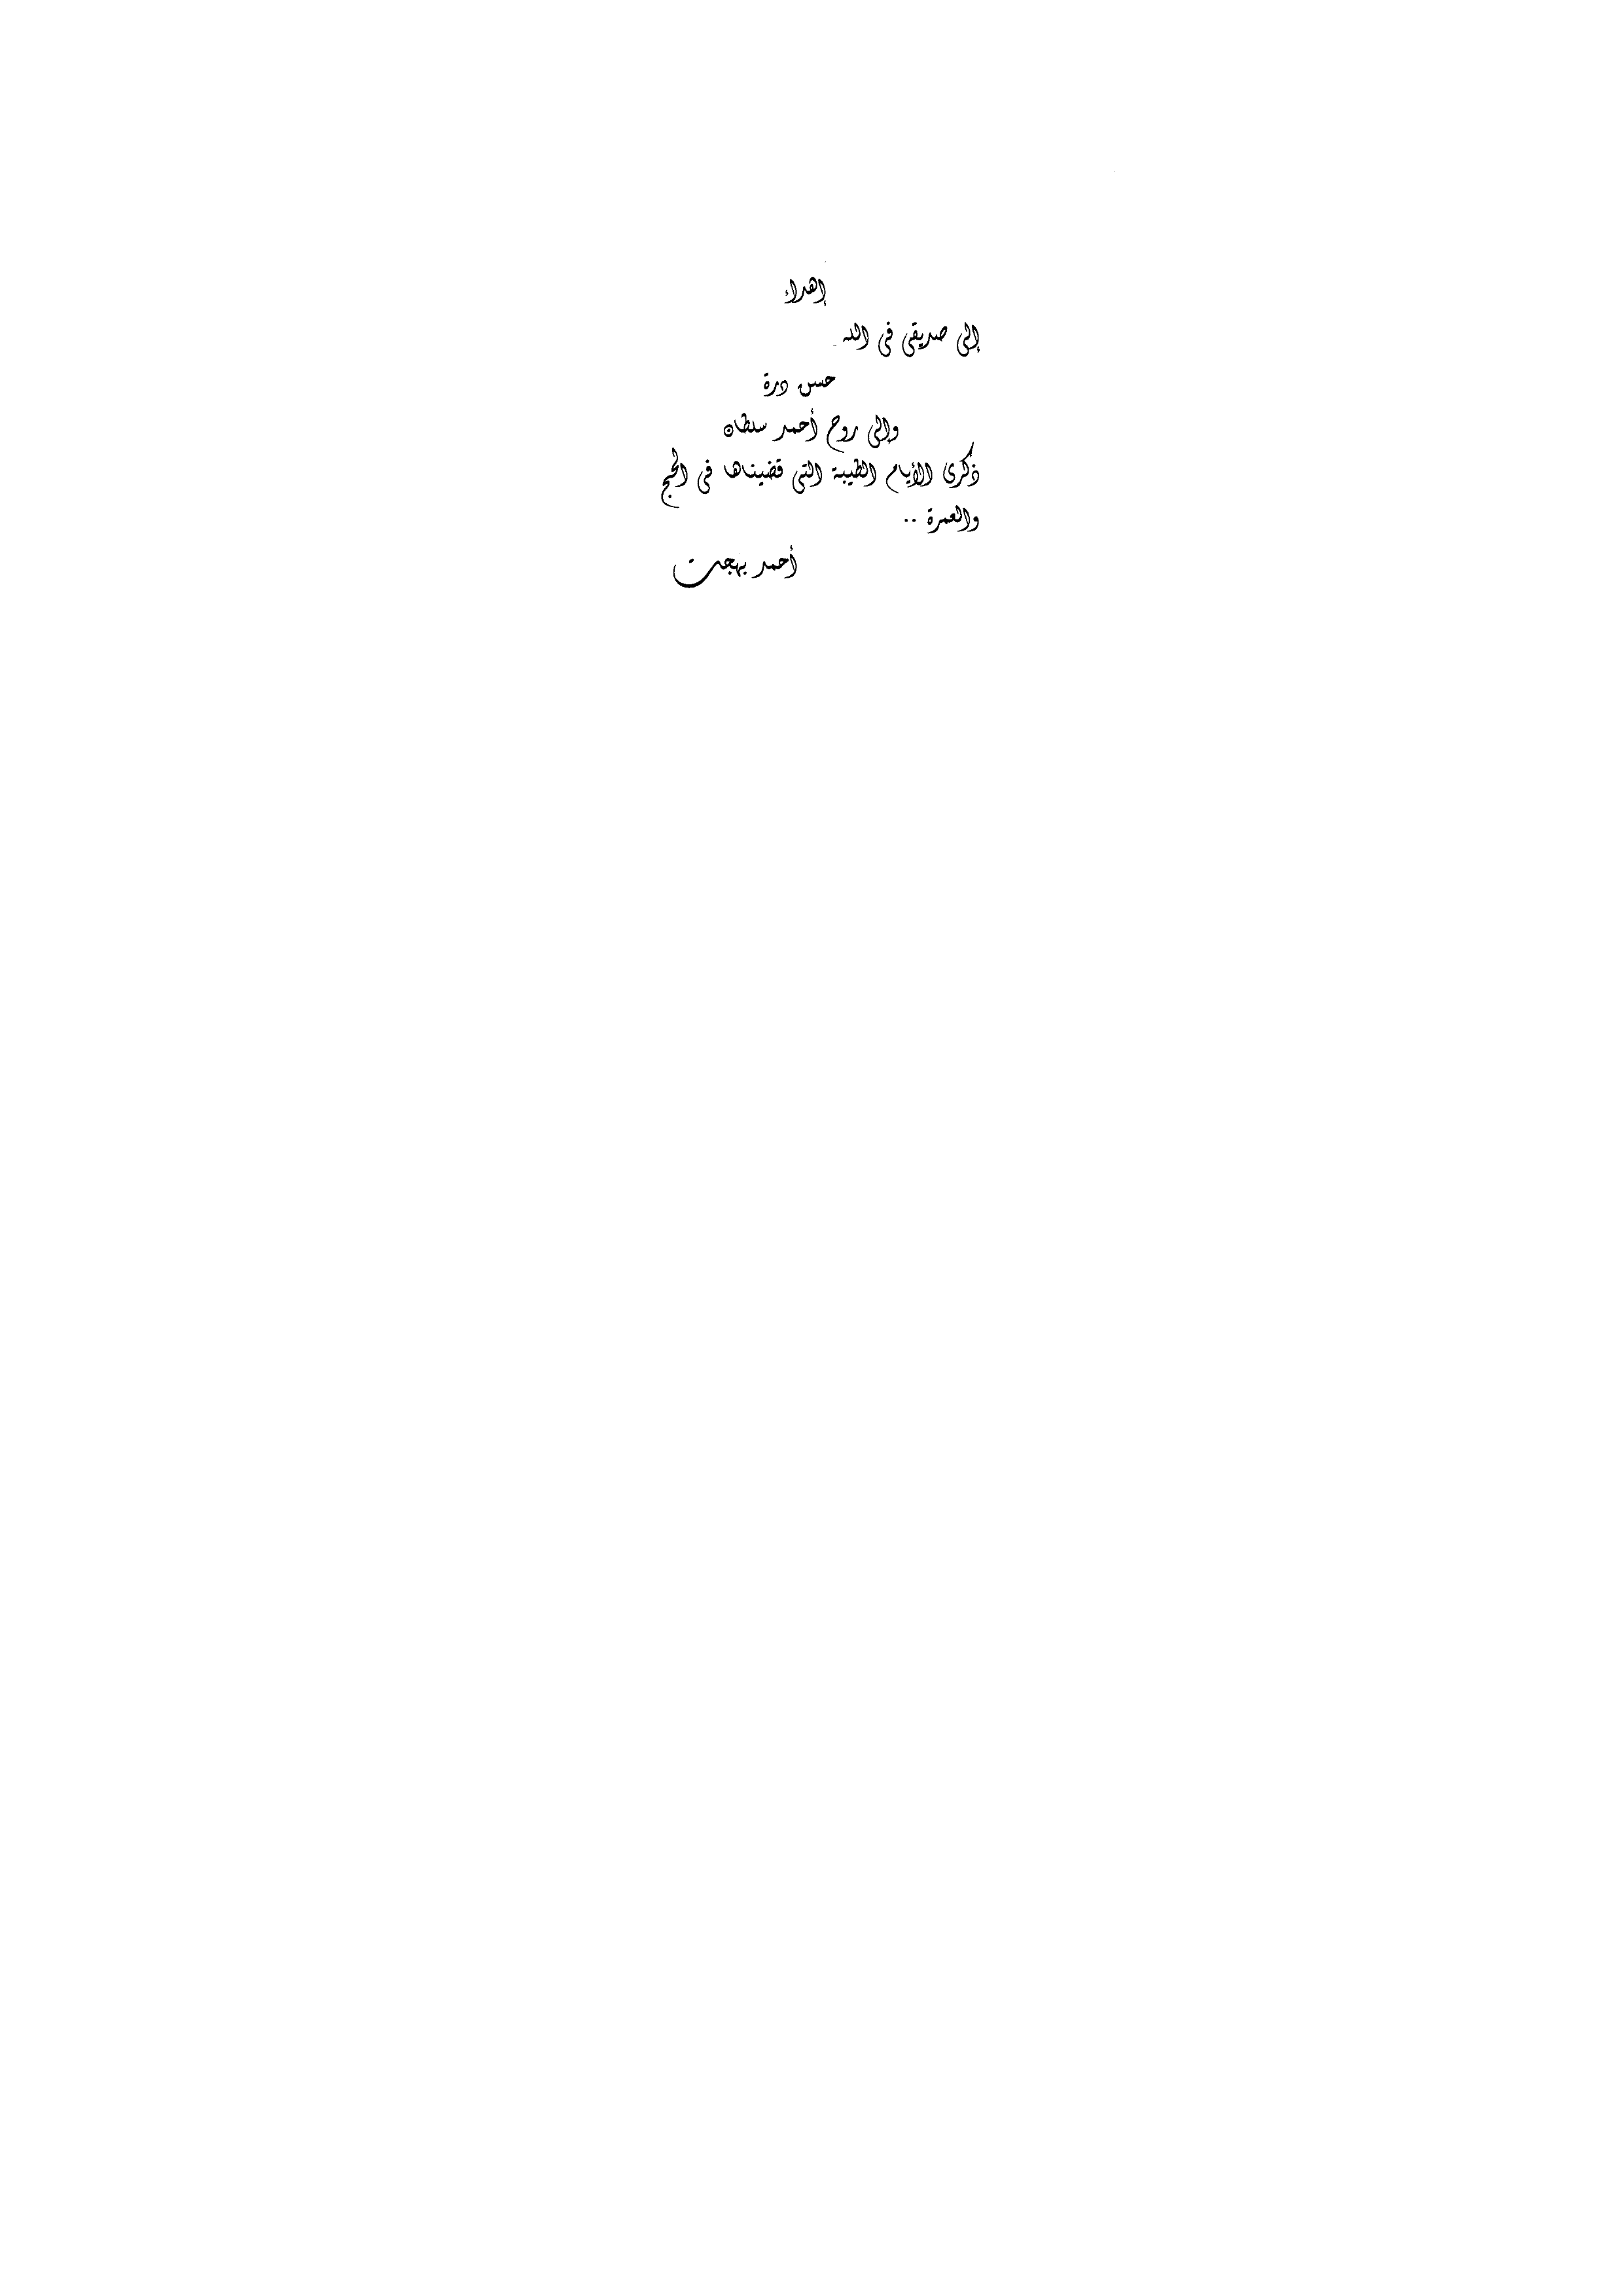 إهداء
إلى صديقى فى الله
حسن درة
وإلى روح أحمد سلطان
ذكرى الأيام الطيبة التى قضيناها فى الحج
والعمرة ..
أحمد بهجت